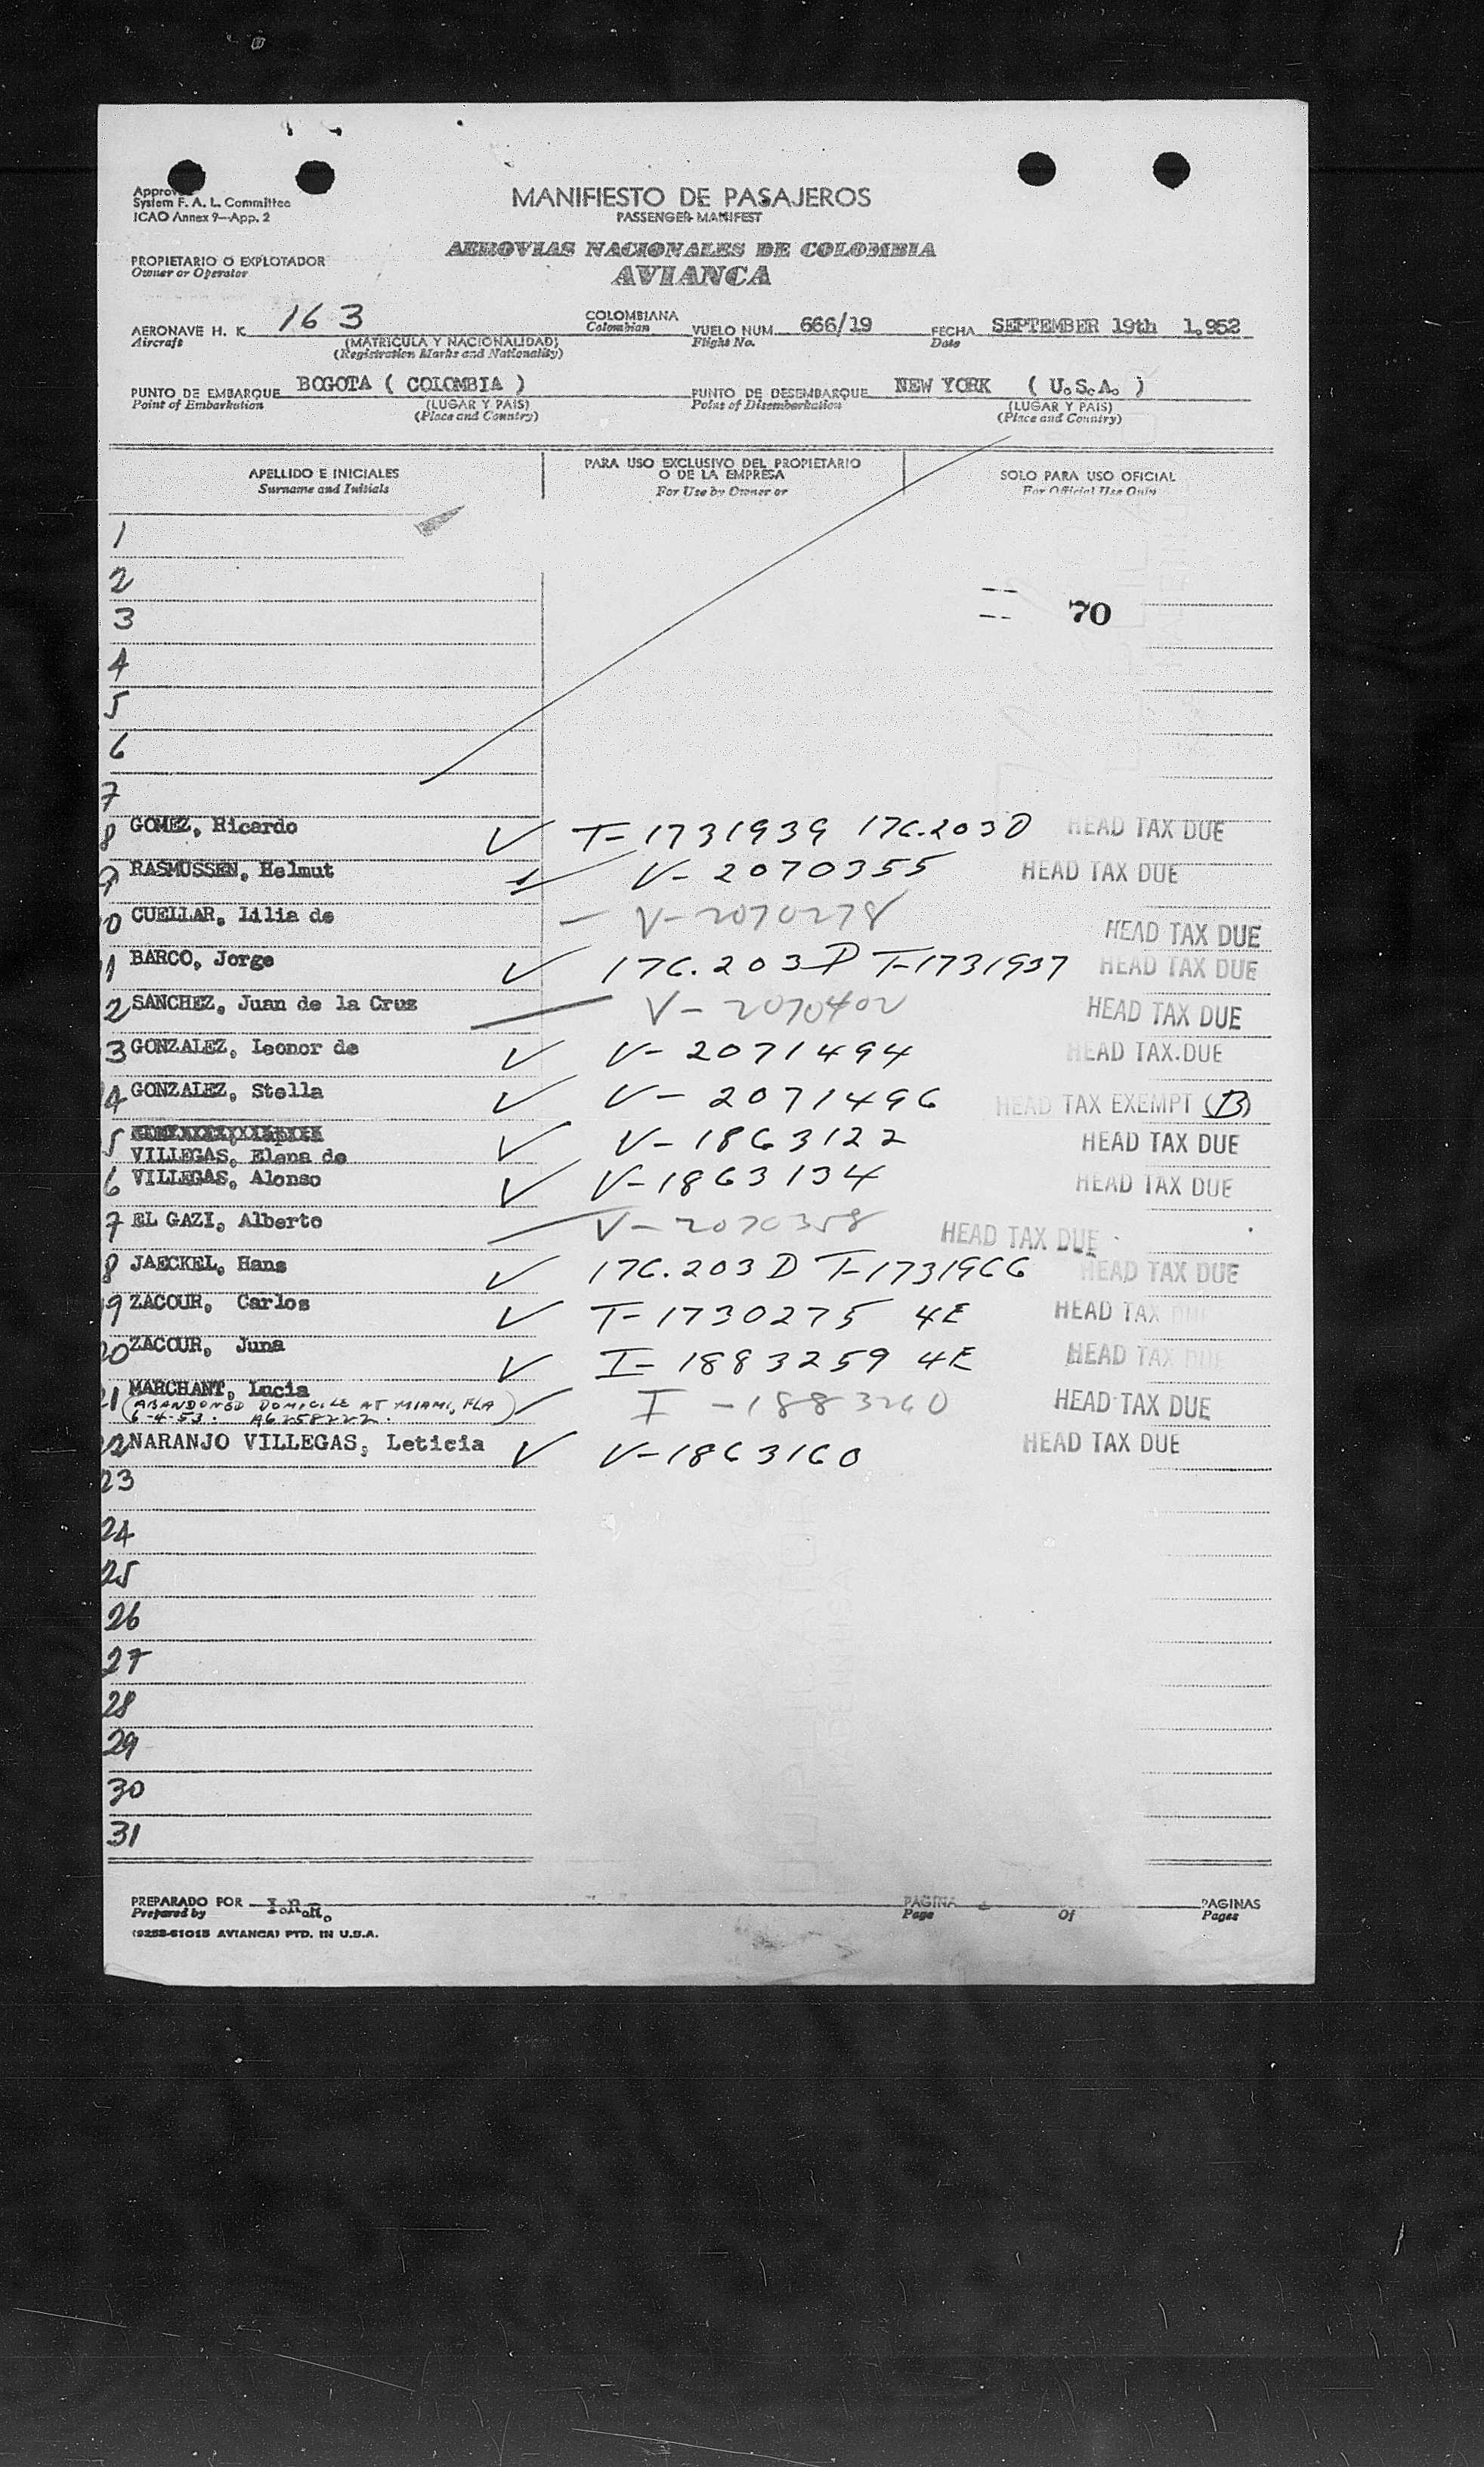 Approved
System F. A. L. Committee
ICAO Annex 9—App. 2
MANIFIESTO DE PASAJEROS
PASSENGER MANIFEST
PROPIETARIO O EXPLOTADOR
Owner or Operator
AEROVIAS NACIONALES DE COLOMBIA
AVIANCA
AERONAVE H. K. 163 COLOMBIANA VUELO NUM. 666/19 FECHA SEPTEMBER 19th 1,952
Aircraft (MATRICULA Y NACIONALIDAD) Colombian Flight No. Date
(Registration Marks and Nationality)
PUNTO DE EMBARQUE BOGOTA ( COLOMBIA ) PUNTO DE DESEMBARQUE NEW YORK ( U.S.A. )
Point of Embarkation (LUGAR Y PAIS) Point of Disembarkation (LUGAR Y PAIS)
(Place and Country) (Place and Country)
APELLIDO E INICIALES PARA USO EXCLUSIVO DEL PROPIETARIO SOLO PARA USO OFICIAL
Surname and Initials O DE LA EMPRESA For Official Use Only
For Use by Owner or
1
2
3 70
4
5
6
7
8 GOMEZ, Ricardo ✓ T-1731939 176.203D HEAD TAX DUE
9 RASMUSSEN, Helmut ✓ V-2070355 HEAD TAX DUE
0 CUELLAR, Lilia de — V-2070278 HEAD TAX DUE
1 BARCO, Jorge ✓ 176.203D T-1731937 HEAD TAX DUE
2 SANCHEZ, Juan de la Cruz — V-2070402 HEAD TAX DUE
3 GONZALEZ, Leonor de ✓ V-2071494 HEAD TAX DUE
4 GONZALEZ, Stella ✓ V-2071496 HEAD TAX EXEMPT (B)
5 VILLEGAS, Elena de ✓ V-1863122 HEAD TAX DUE
6 VILLEGAS, Alonso ✓ V-1863134 HEAD TAX DUE
7 EL GAZI, Alberto — V-2070358 HEAD TAX DUE
8 JAECKEL, Hans ✓ 176.203D T-1731966 HEAD TAX DUE
19 ZACOUR, Carlos ✓ T-1730275 4E HEAD TAX DUE
20 ZACOUR, Juna ✓ I-1883259 4E HEAD TAX DUE
21 MARCHANT, Lucia I-1883260 HEAD TAX DUE
(ABANDONED DOMICILE AT MIAMI, FLA
6-4-53. A6258222.)
22 NARANJO VILLEGAS, Leticia ✓ V-1863160 HEAD TAX DUE
23
24
25
26
27
28
29
30
31
PREPARADO POR PAGINA PAGINAS
Prepared by Page Of Pages
(9258-61015 AVIANCA) PTD. IN U.S.A.